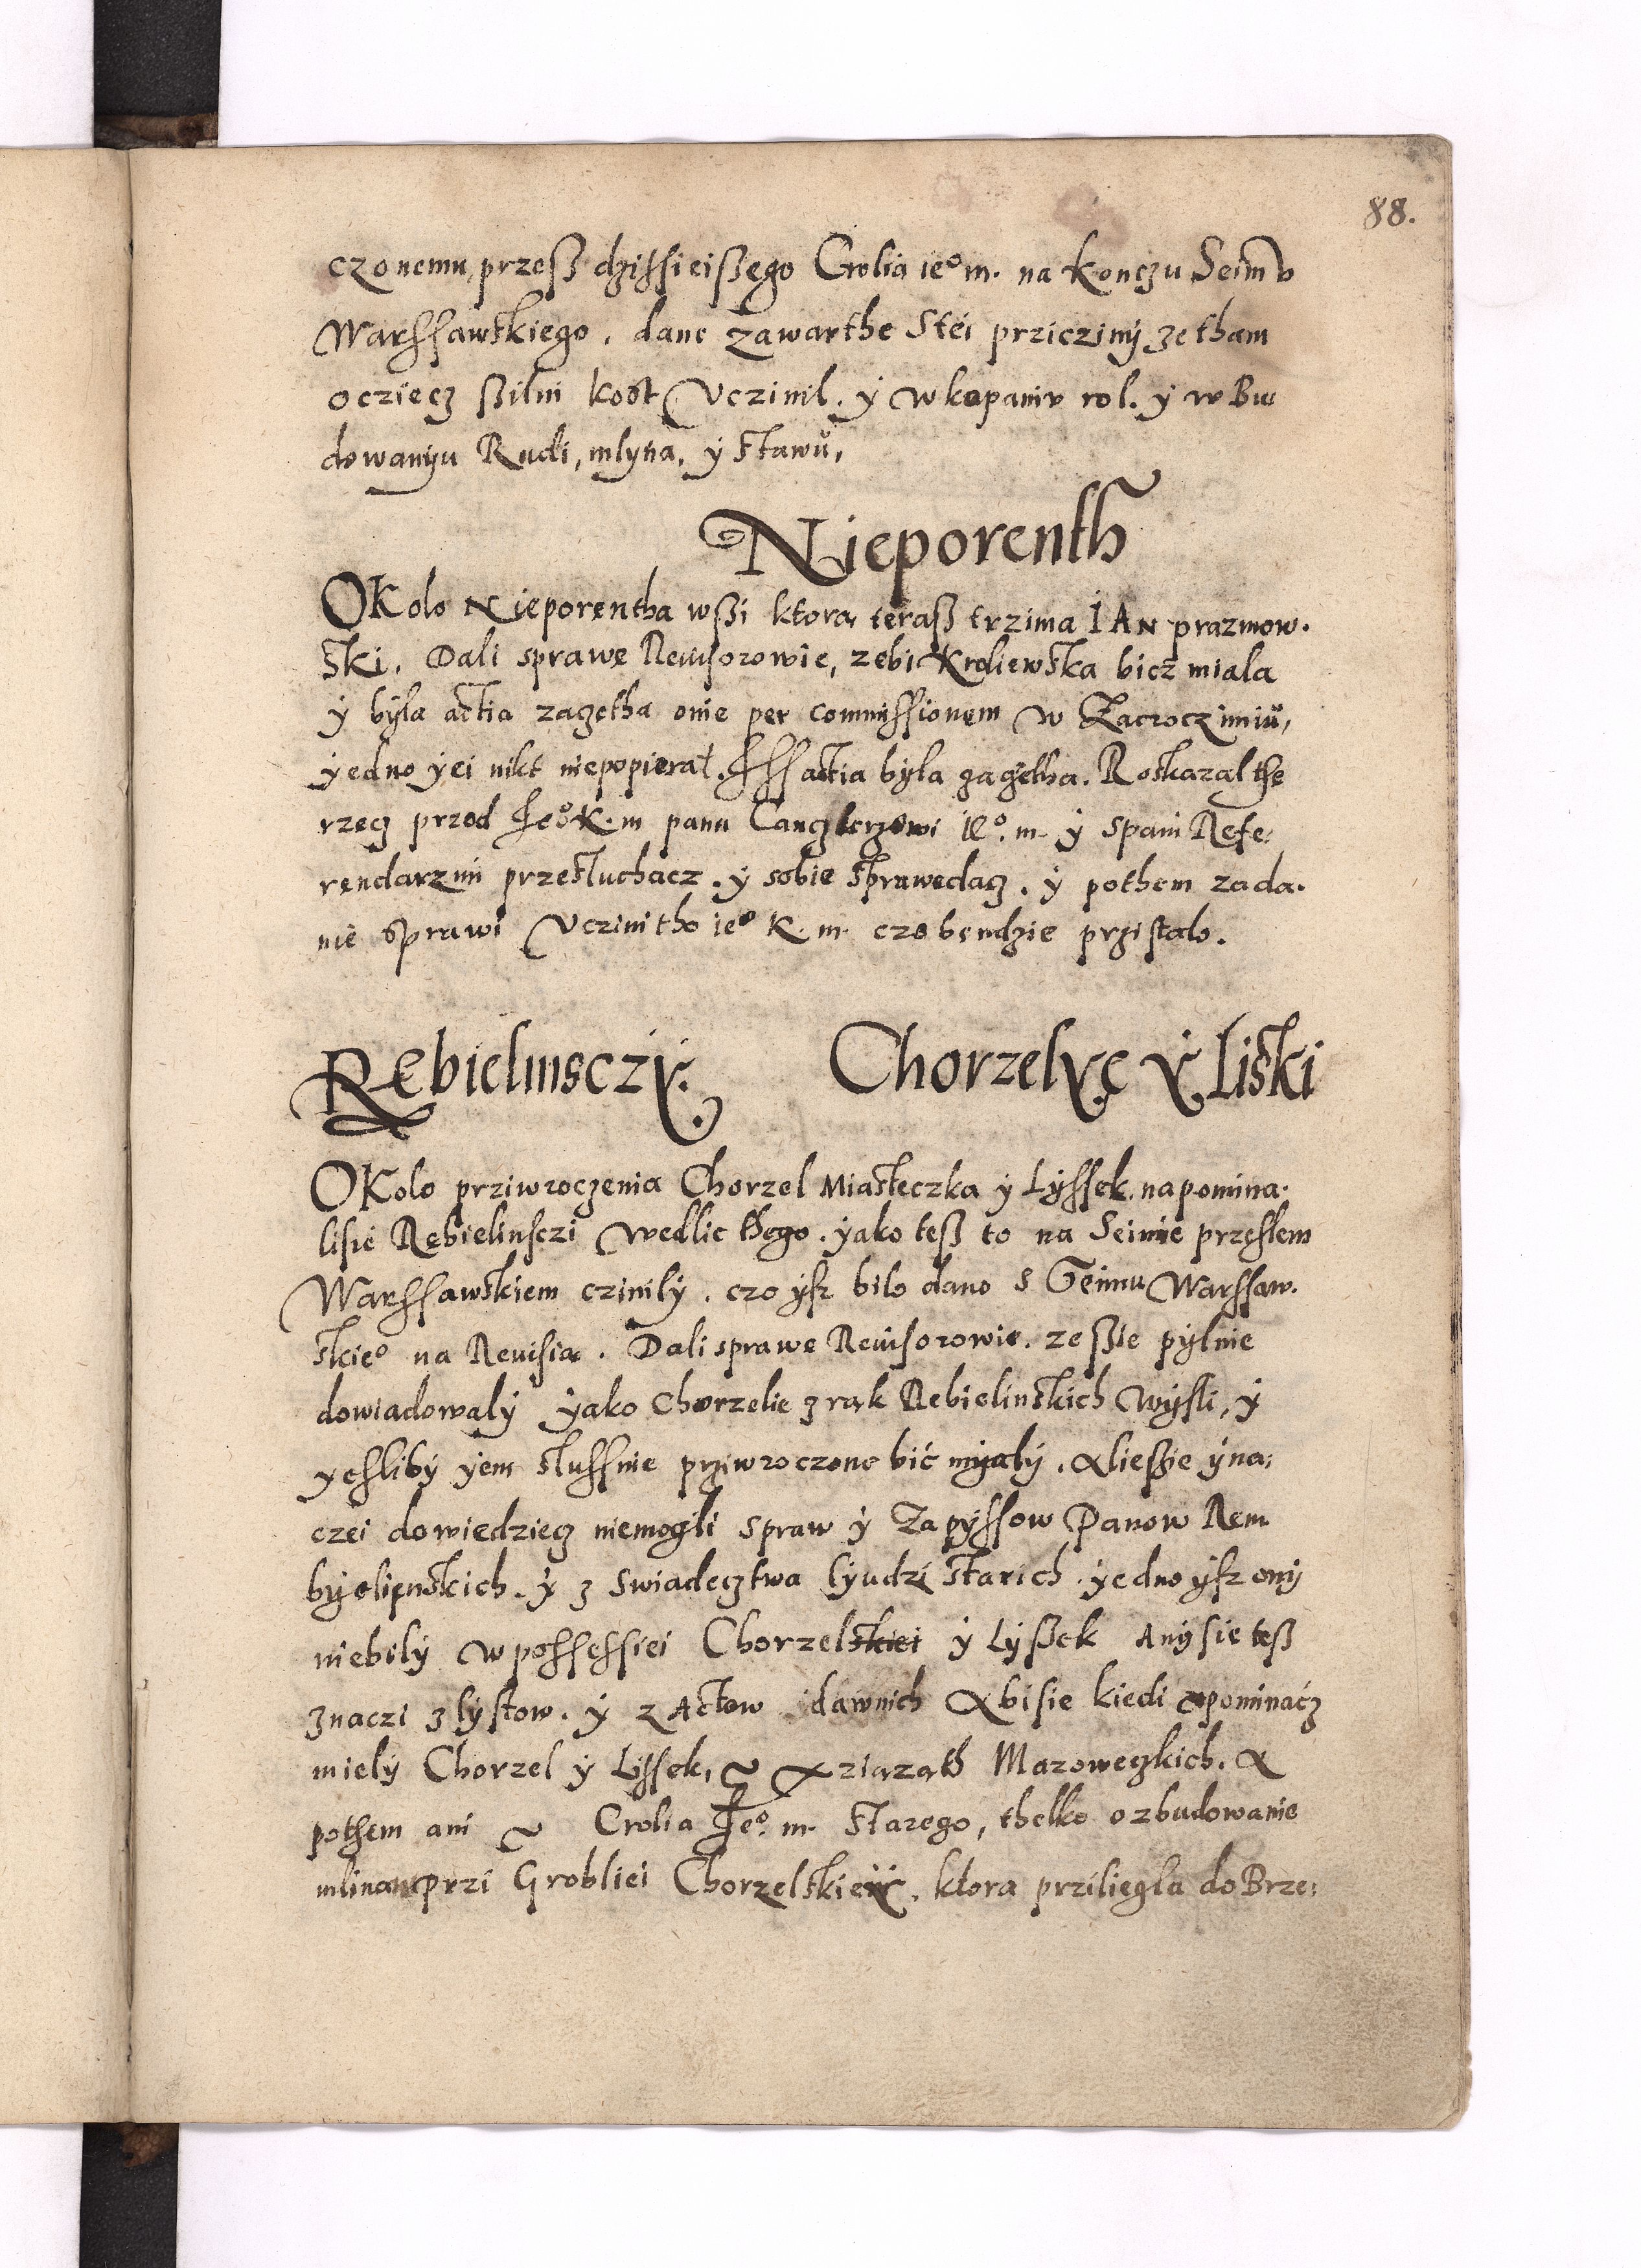 88.
czonemu, przesß dzissieißego Crolia ieº m. na Konczu Seimv
Warssawskiego. dane zawarthe Stéi prziczinÿ ze tham
ocziecz ßilni kost Vczinil. ÿ w kopaniv rol. ÿ w Bu
dowanÿu Rudi, mlyna, ÿ stawŭ,
Nieporenth
OKolo Nieporentha wßi ktora teraß trzima IAN prazmow.
ski. Dali sprawe Reuisorowie, zebi Kroliewska bicz miala
ÿ bÿla actia zagetha onie per commissionem w Zacroczimiŭ,
ÿedno ÿei nikt niepopieral. actia bÿla zagetha. Roskazal the
rzecz przod Jeº K. m panu Canczlerzowi ieº. m. ÿ spani Refe:
rendarzmi przesluchacz. ÿ sobie sprawedacz. ÿ pothem zada.
nie sprawi Vczinitho ieº K. m. czo bendzie przistalo.
Rebielinsczÿ. Chorzelÿe ÿ Liski
OKolo prziwroczenia Chorzel Miasteczka ÿ Lÿssek. napomina.
lisie Rebielinsczi wedlie thego. ÿako teß to na Seimie przeslem
Warssawskiem czinilÿ. czo ÿsz bilo dano s Seimu Warssaw.
skieº na Reuisia. Dali sprawe Reuisorowie. ze ßie pÿlnie
dowiadowalÿ ÿako Chorzelie z rak Rebielinskich wÿsli, ÿ
ÿesliby ÿem slussnie prziwroczone bić mÿalÿ. Aließie ÿna:
czei dowiedziecz niemogli spraw ÿ Zapÿssow Panow Rem
bÿelienskich. ÿ z swiadecztwa lÿudzi starich. ÿedno ÿsz onÿ
niebilÿ w possessiei Chorzelskiei ÿ Lÿßek Anÿ sie teß
znaczi z lÿstow. ÿ z Actow dawnich Abisie kiedi vpominacz
mielÿ Chorzel ÿ Lissek, v Xziazath Mazoweczkich. A
pothem ani v Crolia Jeº. m. starego, thelko o zbudowanie
mlina przi Grobliei Chorzelskieÿ. ktora priliegla do Brze: